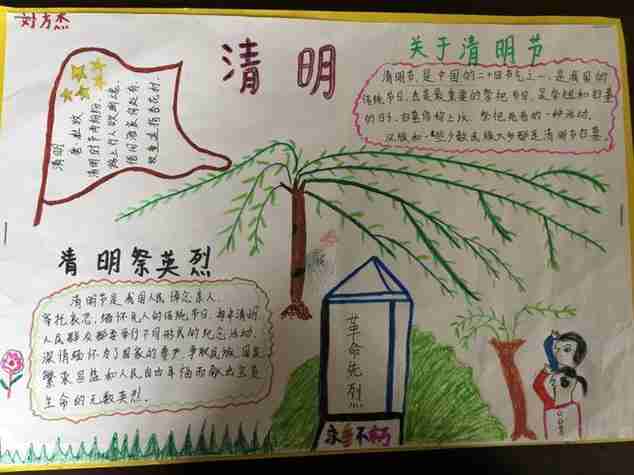 刘方杰
清明
关于清明节
清明节,是中国的二十四节气之一,是我国的
传统节日,也是最重要的祭祀节日,是祭祖和扫墓
的日子。扫墓俗称上坟,祭祀死者的一种活动。
汉族和一些少数民族大多都是清明节扫墓
清明
唐 杜牧
清明时节雨纷纷,
路上行人欲断魂。
借问酒家何处有,
牧童遥指杏花村。
清明祭英烈
清明节是我国人民悼念亲人、
寄托哀思、缅怀先人的传统节日,每年清明,
人民群众都要举行不同形式的纪念活动,
深情缅怀为了国家的尊严、争取民族、国家
繁荣昌盛和人民自由幸福而献出宝贵
生命的无数英烈。
革命先烈
永垂不朽